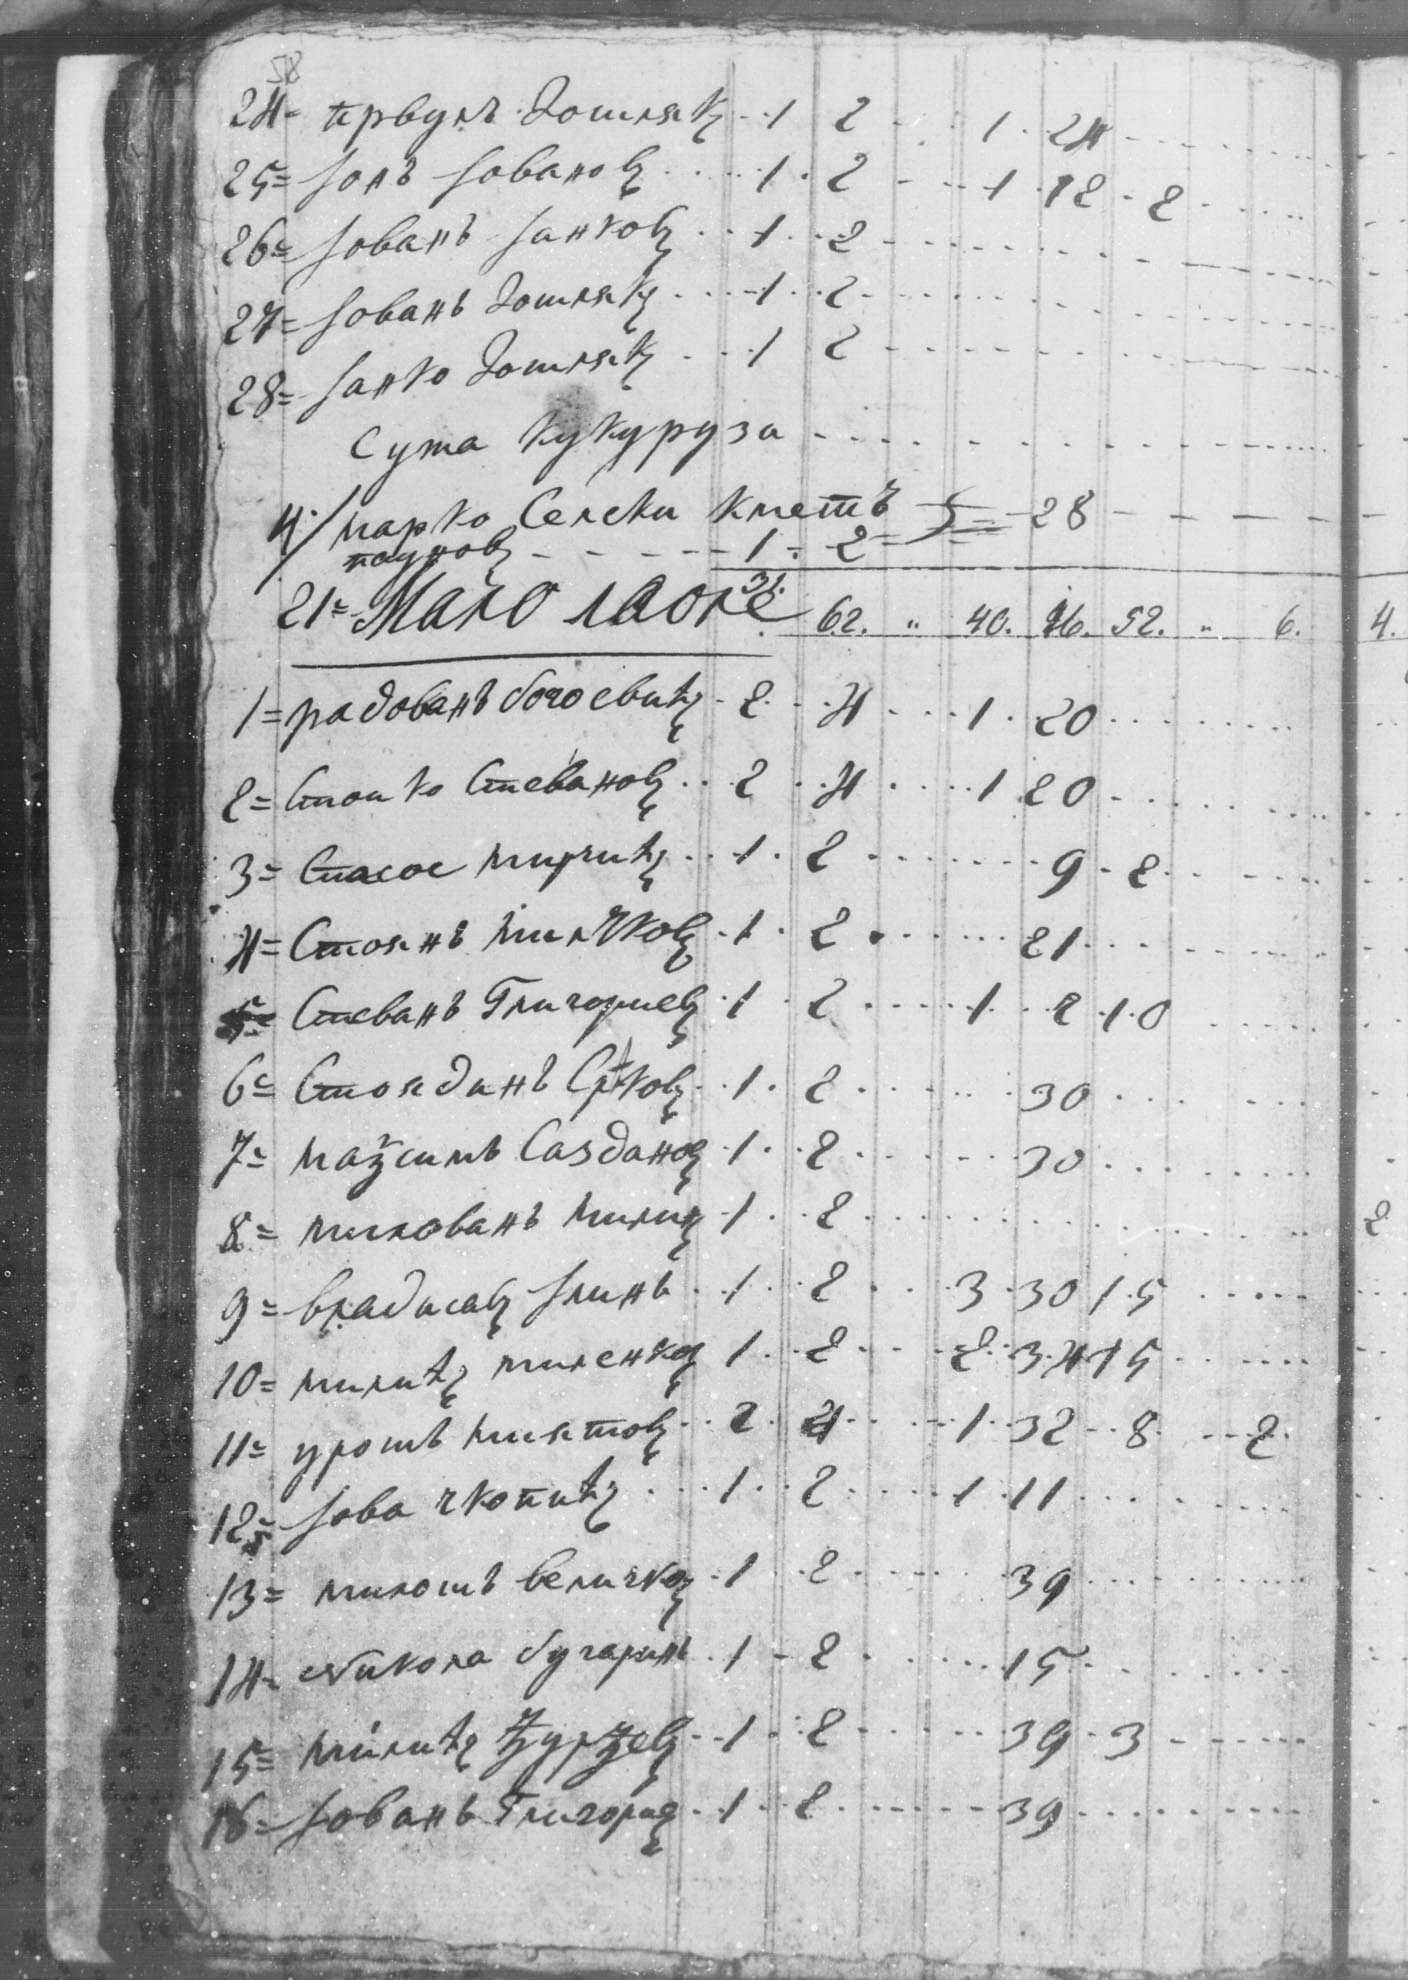 58
24= првулъ 1 2 1 24
25= јонъ јовановъ 1 2 1 12 2
26= јованъ јанковъ 1 2
27= јованъ 1 2
28= јанко 1 2
Сума кукуруза
4/ марко Селски кметъ 5 = 28
пауновъ 1 2
31.
21= Мало лаоле 62. " 40. 52. " 6. 4.
1= радованъ 2 4 1 20
2= Стоико Стевановъ 2 4 1 20
3= Спасое мирчићъ 1 2 9 2
4= Стоянъ 1 2 21
5= Стеванъ Глигориевъ 1 2 1 2 10
6= 1 2 30
7= 1 2 30
8= милованъ милић 1 2 2
9= владисавъ 1 2 3 30 15
10= милићъ миленков 1 2 2 34 15
11= урошъ миятовъ 2 4 1 32 8 2
12= јова чкопићъ 1 2 1 11
13= милошъ величков 1 2 39
14= никола бугаринъ 1 2 15
15= милићъ ђурђевъ 1 2 39 3
16= јованъ Глигорие 1 2 39